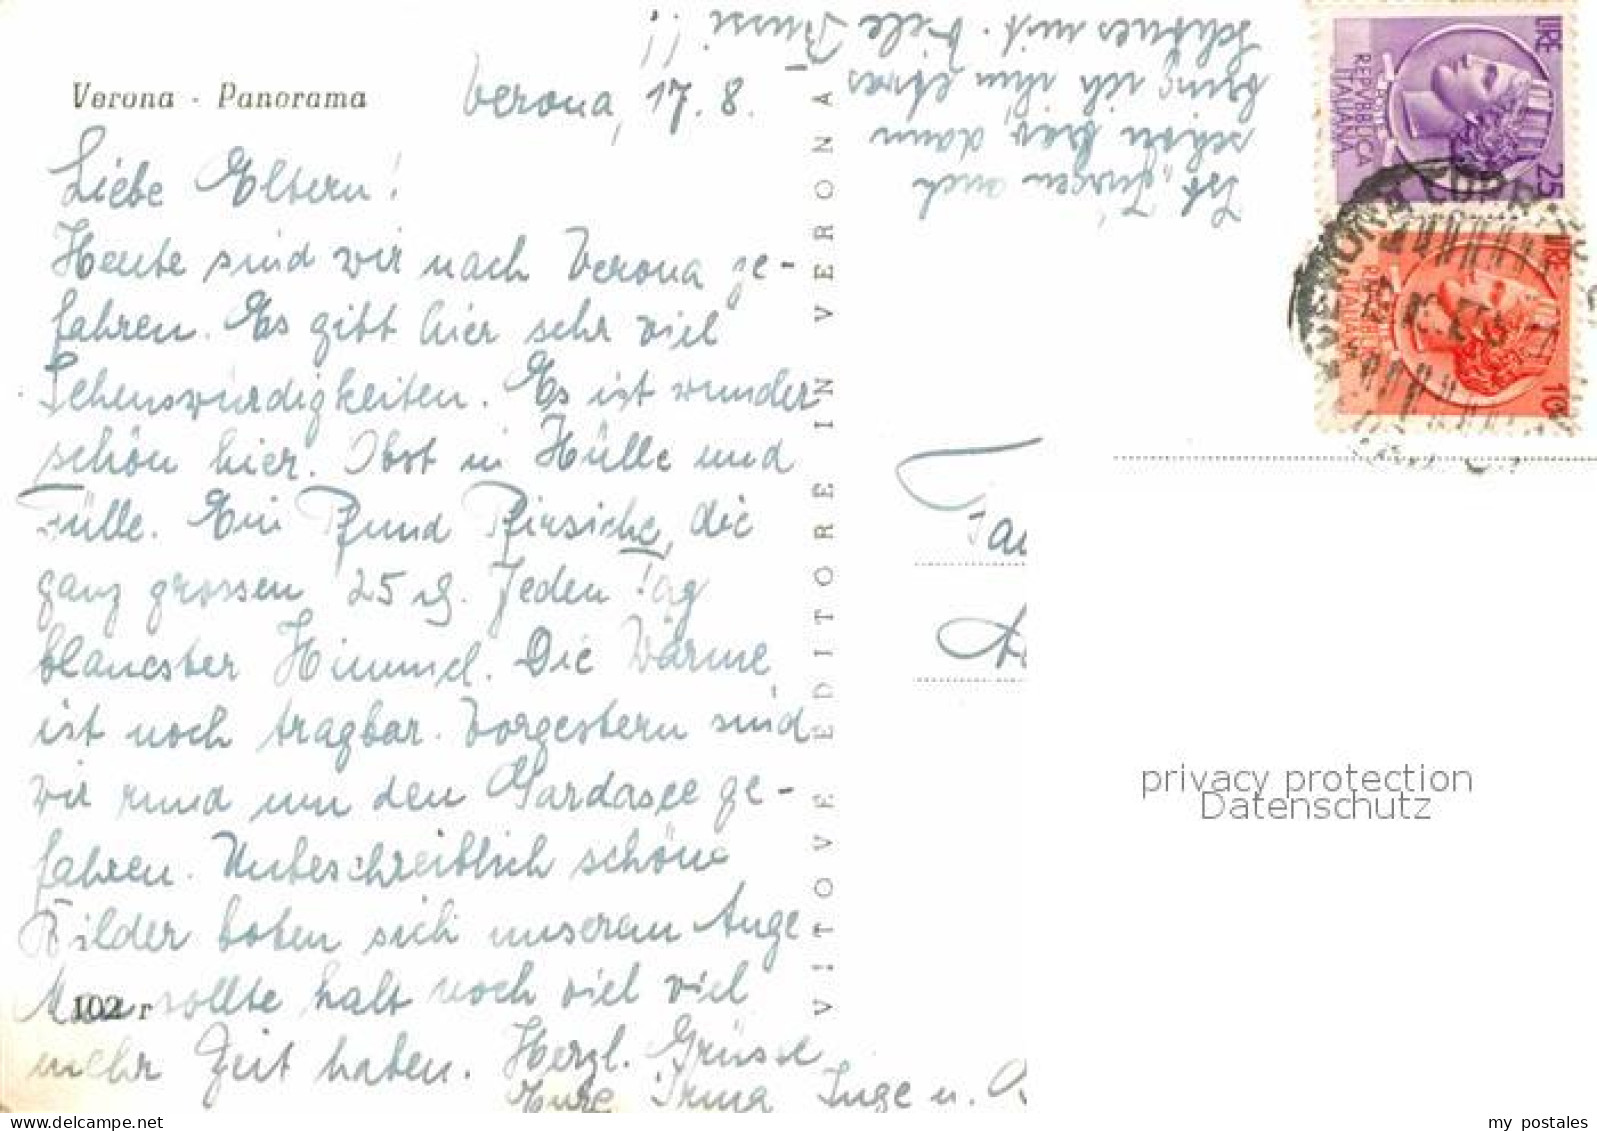 Verona - Panorama
Verona, 17. 8.
Liebe Eltern!
Heute sind wir nach Verona ge-
fahren. Es gibt hier sehr viel
Sehenswürdigkeiten. Es ist wunder
schön hier. Obst in Hülle und
Fülle. Ein Pfund Pfirsiche, die
ganz grossen 25 Pf. Jeden Tag
blauester Himmel. Die Wärme
ist noch tragbar. Vorgestern sind
wir rund um den Gardasee ge-
fahren. Unbeschreiblich schöne
Bilder boten sich unserem Auge
Man sollte halt noch viel viel
mehr Zeit haben. Herzl. Grüsse
Eure Irma Inge u.
102 r
Ist Jürgen auch
schön brav, dann
bring ich ihm etwas
schönes mit. Viele Küsse!!
VITOVE EDITORE IN VERONA
LIRE 25
REPVBBLICA
ITALIANA
LIRE 10
REPVBBLICA
ITALIANA
VERONA
privacy protection
Datenschutz
my_postales